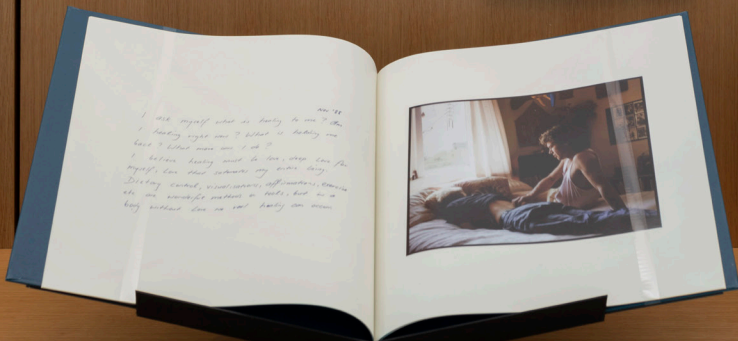 Nov '88
I ask myself what is healing to me? Am
I healing right now? What is holding me
back? What more can I do?
I believe healing must be love, deep love for
myself. Love that
Dieting control, visualizations, affirmations,
etc are wonderful methods or tools, but in a
body without love no real healing can occur